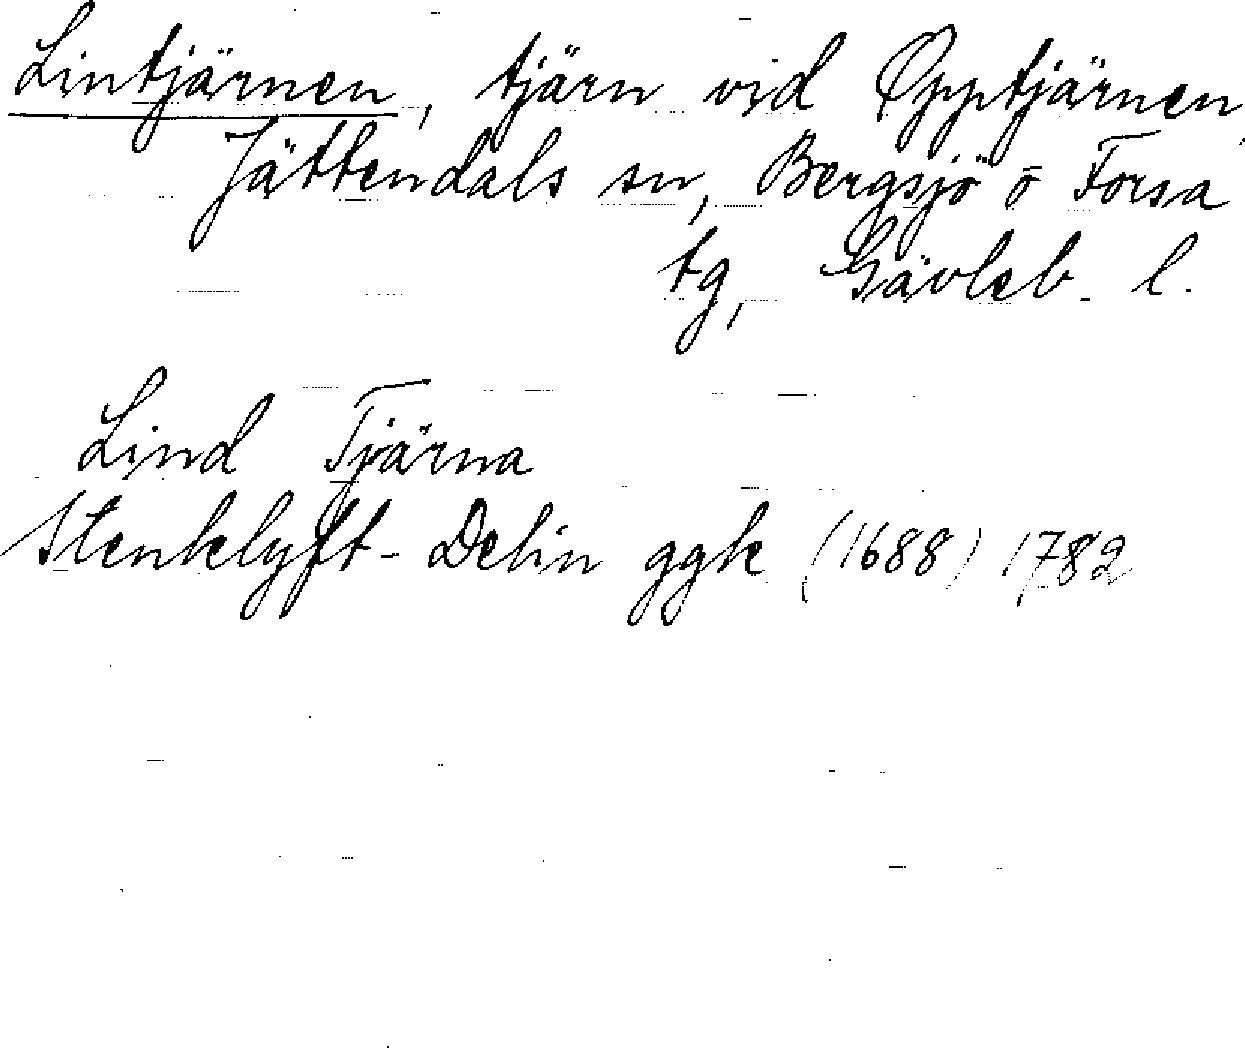 Lintjärnen, tjärn vid Opptjärnen,
Jättendals sn, Bergsjö o Forsa
tg, Gävleb. l.
Lind Tjärna
Stenklyft- Delin ggk (1688) 1782